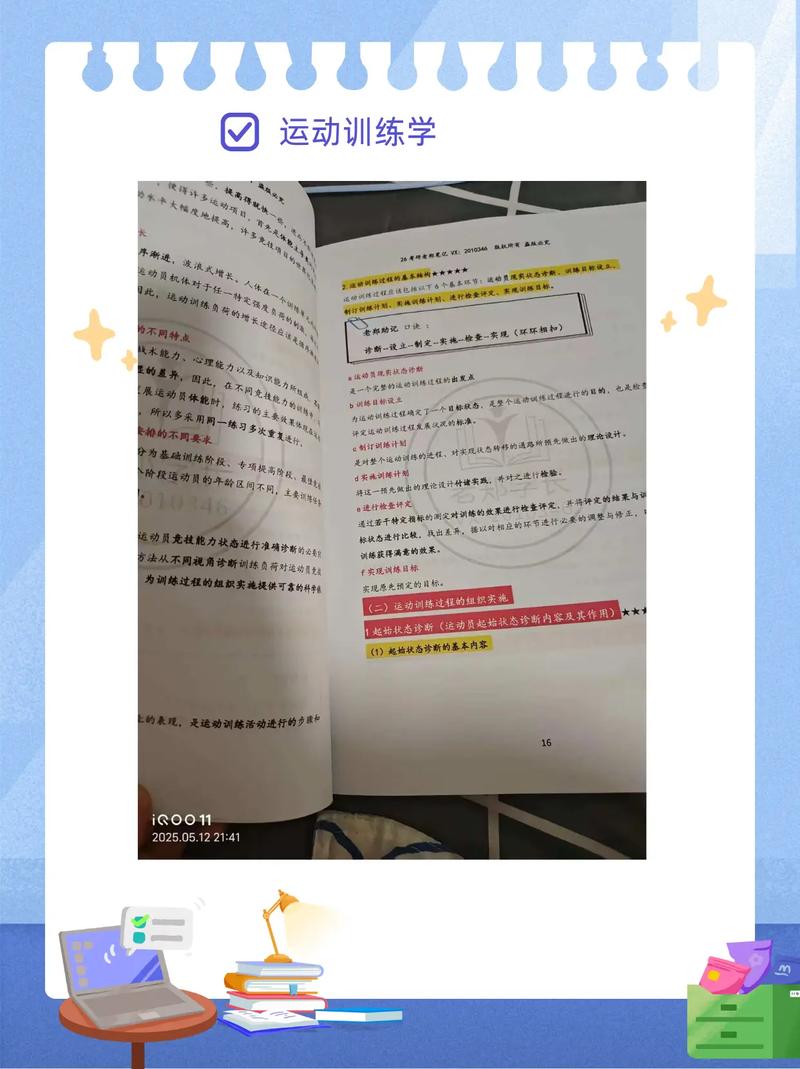 运动训练学
些，提高得就快一些，
，使得许多运动项目，首先是体能主导
动水平大幅度地提高，许多竞技项目的世界
长
序渐进，波浪式增长。人体在一个训练
运动员机体对于任一特定强度负荷的刺激，
因此，运动训练负荷的增长途径应该是循序渐
的不同特点
战术能力、心理能力以及知识能力所组成，
显的差异，因此，在不同竞技能力的训练中，
发展运动员体能时，练习的主要效果体现在
，所以多采用同一练习多次重复进行。
安排的不同要求
分为基础训练阶段、专项提高阶段、最佳竞技
个阶段运动员的年龄区间不同，主要训练任务
010346
运动员竞技能力状态进行准确诊断的必要
方法从不同视角诊断训练负荷对运动员竞技
，为训练过程的组织实施提供可靠的科学依
上的表现，是运动训练活动进行的步骤和
26考研老郑笔记 VX：2010346 版权所有 盗版必究
2.运动训练过程的基本结构★★★★★
运动训练过程应该包括以下6个基本环节：运动员现实状态诊断、训练目标设立、
制订训练计划、实施训练计划、进行检查评定、实现训练目标。
老郑助记 口诀：
诊断--设立--制定--实施--检查--实现（环环相扣）
a运动员现实状态诊断
是一个完整的运动训练过程的出发点
b训练目标设立
为运动训练过程确定了一个目标状态，是整个运动训练过程进行的目的，也是检查
评定运动训练过程发展状况的标准。
c制订训练计划
是对整个运动训练的进程、对实现状态转移的通路所预先做出的理论设计。
d实施训练计划
将这一预先做出的理论设计付诸实践，并对之进行检验。
e进行检查评定
通过若干特定指标的测定对训练的效果进行检查评定，并将评定的结果与训
标状态进行比较，找出差异，据以对相应的环节进行必要的调整与修正，
训练获得满意的效果。
f实现训练目标
实现原先预定的目标。
（二）运动训练过程的组织实施
1起始状态诊断（运动员起始状态诊断内容及其作用）★★★
（1）起始状态诊断的基本内容
老郑学长
16
iQOO 11
2025.05.12 21:41